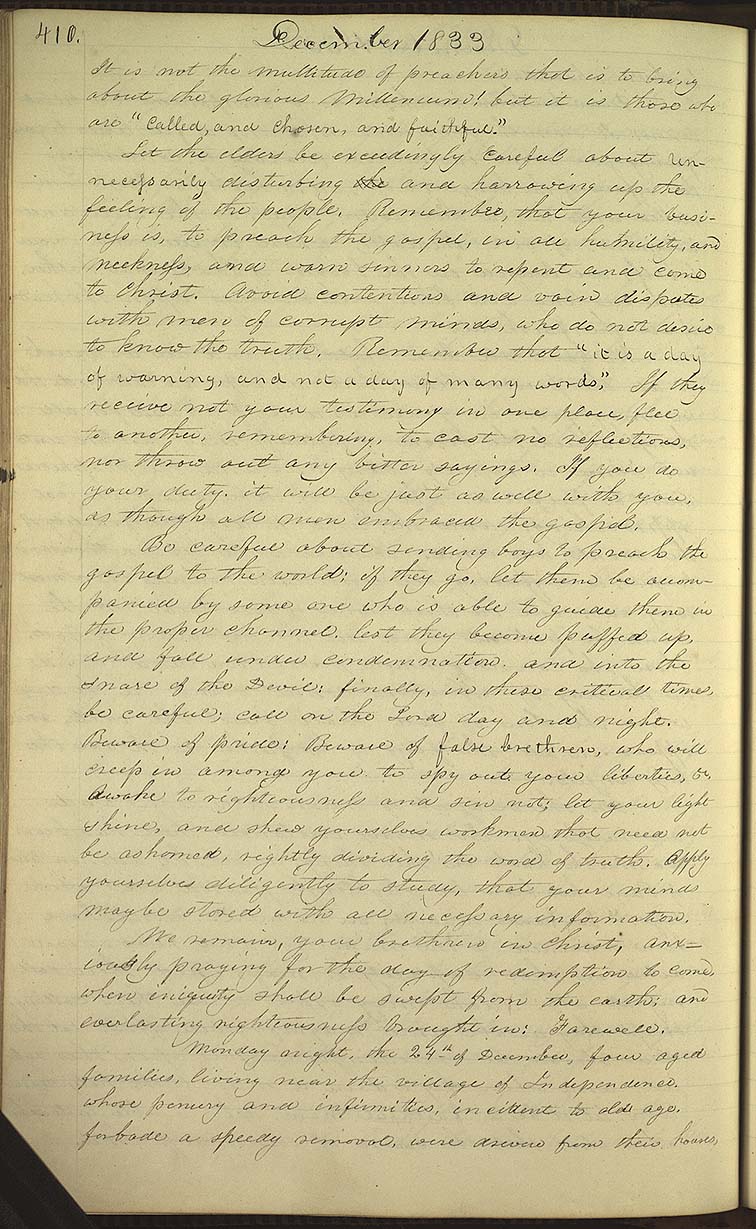 410.
December 1833
It is not the multitude of preachers that is to bring
about the glorious Millenium! but it is those who
are "called, and chosen, and faithful."
Let the elders be exceedingly careful about un-
necessarily disturbing the and harrowing up the
feeling of the people. Remember, that your busi-
ness is, to preach the gospel, in all humility, and
meekness, and warn sinners to repent and come
to Christ. Avoid contentions and vain disputes
with men of corrupt minds, who do not desire
to know the truth. Remember that "it is a day
of warning, and not a day of many words." If they
receive not your testimony in one place, flee
to another, remembering, to cast no reflections,
nor throw out any bitter sayings. If you do
your duty. it will be just as well with you,
as though all men embraced the gospel.
Be careful about sending boys to preach the
gospel to the world; if they go, let them be accom-
panied by some one who is able to guide them in
the proper channel. lest they become puffed up,
and fall under condemnation. and into the
snare of the Devil: finally, in these critical times,
be careful; call on the Lord day and night.
Beware of pride; Beware of false brethren, who will
creep in among you to spy out your liberties, &c
Awake to righteousness and sin not; let your light
shine, and shew yourselves workmen that need not
be ashamed, rightly dividing the word of truth. Apply
yourselves diligently to study, that your minds
may be stored with all necessary information.
We remain, your brethren in Christ, anx=
iously praying for the day of redemption to come,
when iniquity shall be swept from the earth; and
everlasting righteousness brought in: Farewell.
Monday night, the 24th of December, four aged
families, living near the village of Independence.
whose penury and infirmities, incident to old age.
forbade a speedy removal, were driven from their houses,